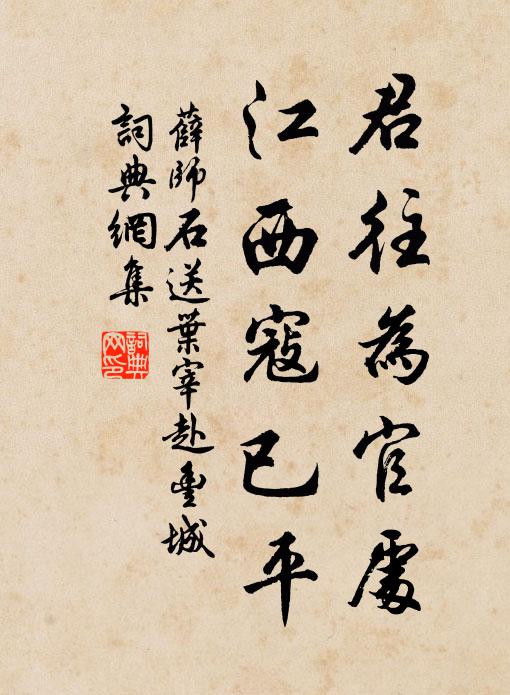 君往為官處
江西寇已平
薛師石送葉宰赴豐城
詞典網集
詞典網印